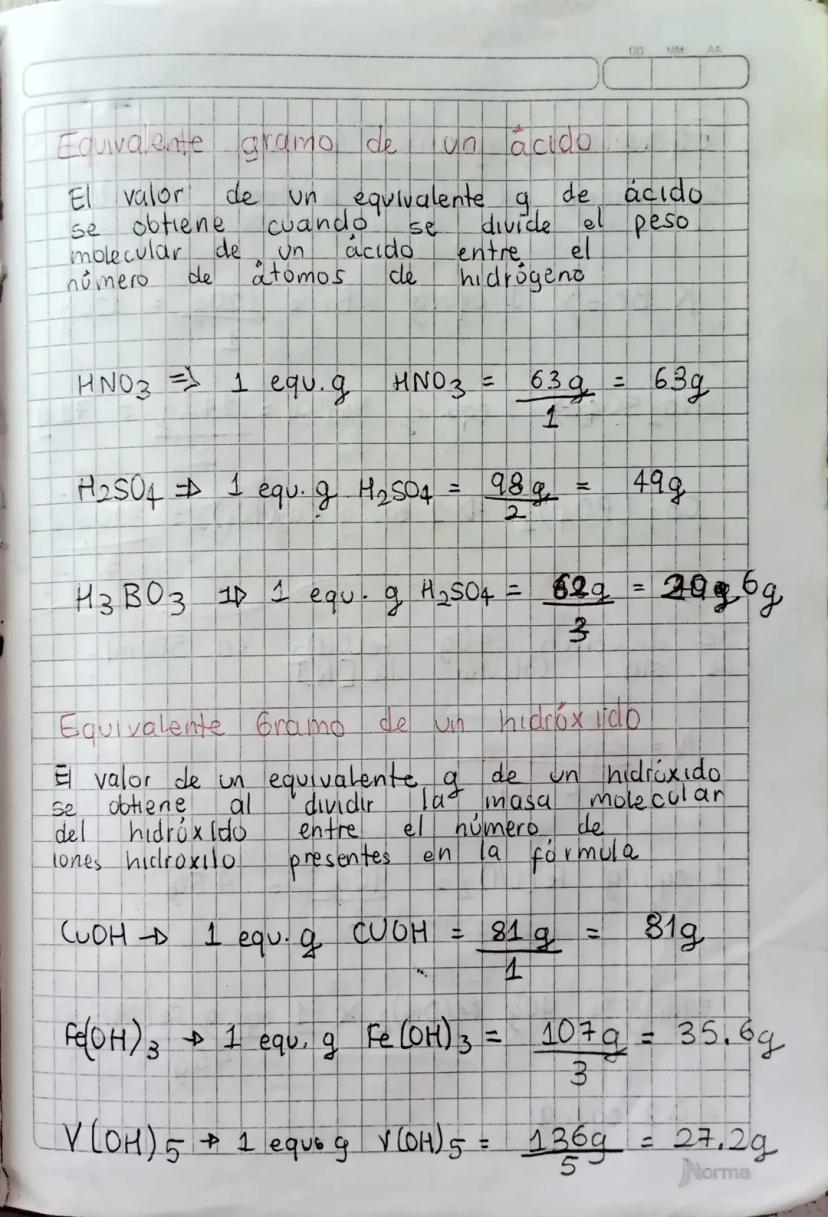 DD MM AA
Equivalente gramo de un ácido
El valor de un equivalente g de ácido
se obtiene cuando se divide el peso
molecular de un ácido entre el
número de átomos de hidrógeno
HNO3 ⇒ 1 equ. g HNO3 = 63g/1 = 63g
H2SO4 ⇒ 1 equ. g H2SO4 = 98g/2 = 49g
H3BO3 ⇒ 1 equ. g H2SO4 = 62g/3 = 6g
Equivalente Gramo de un hidróxido
El valor de un equivalente g de un hidróxido
se obtiene al dividir la masa molecular
del hidróxido entre el número de
iones hidroxilo presentes en la fórmula
CuOH → 1 equ. g CUOH = 81g/1 = 81g
Fe(OH)3 → 1 equ. g Fe(OH)3 = 107g/3 = 35.6g
V(OH)5 → 1 equ. g V(OH)5 = 136g/5 = 27.2g
Norma